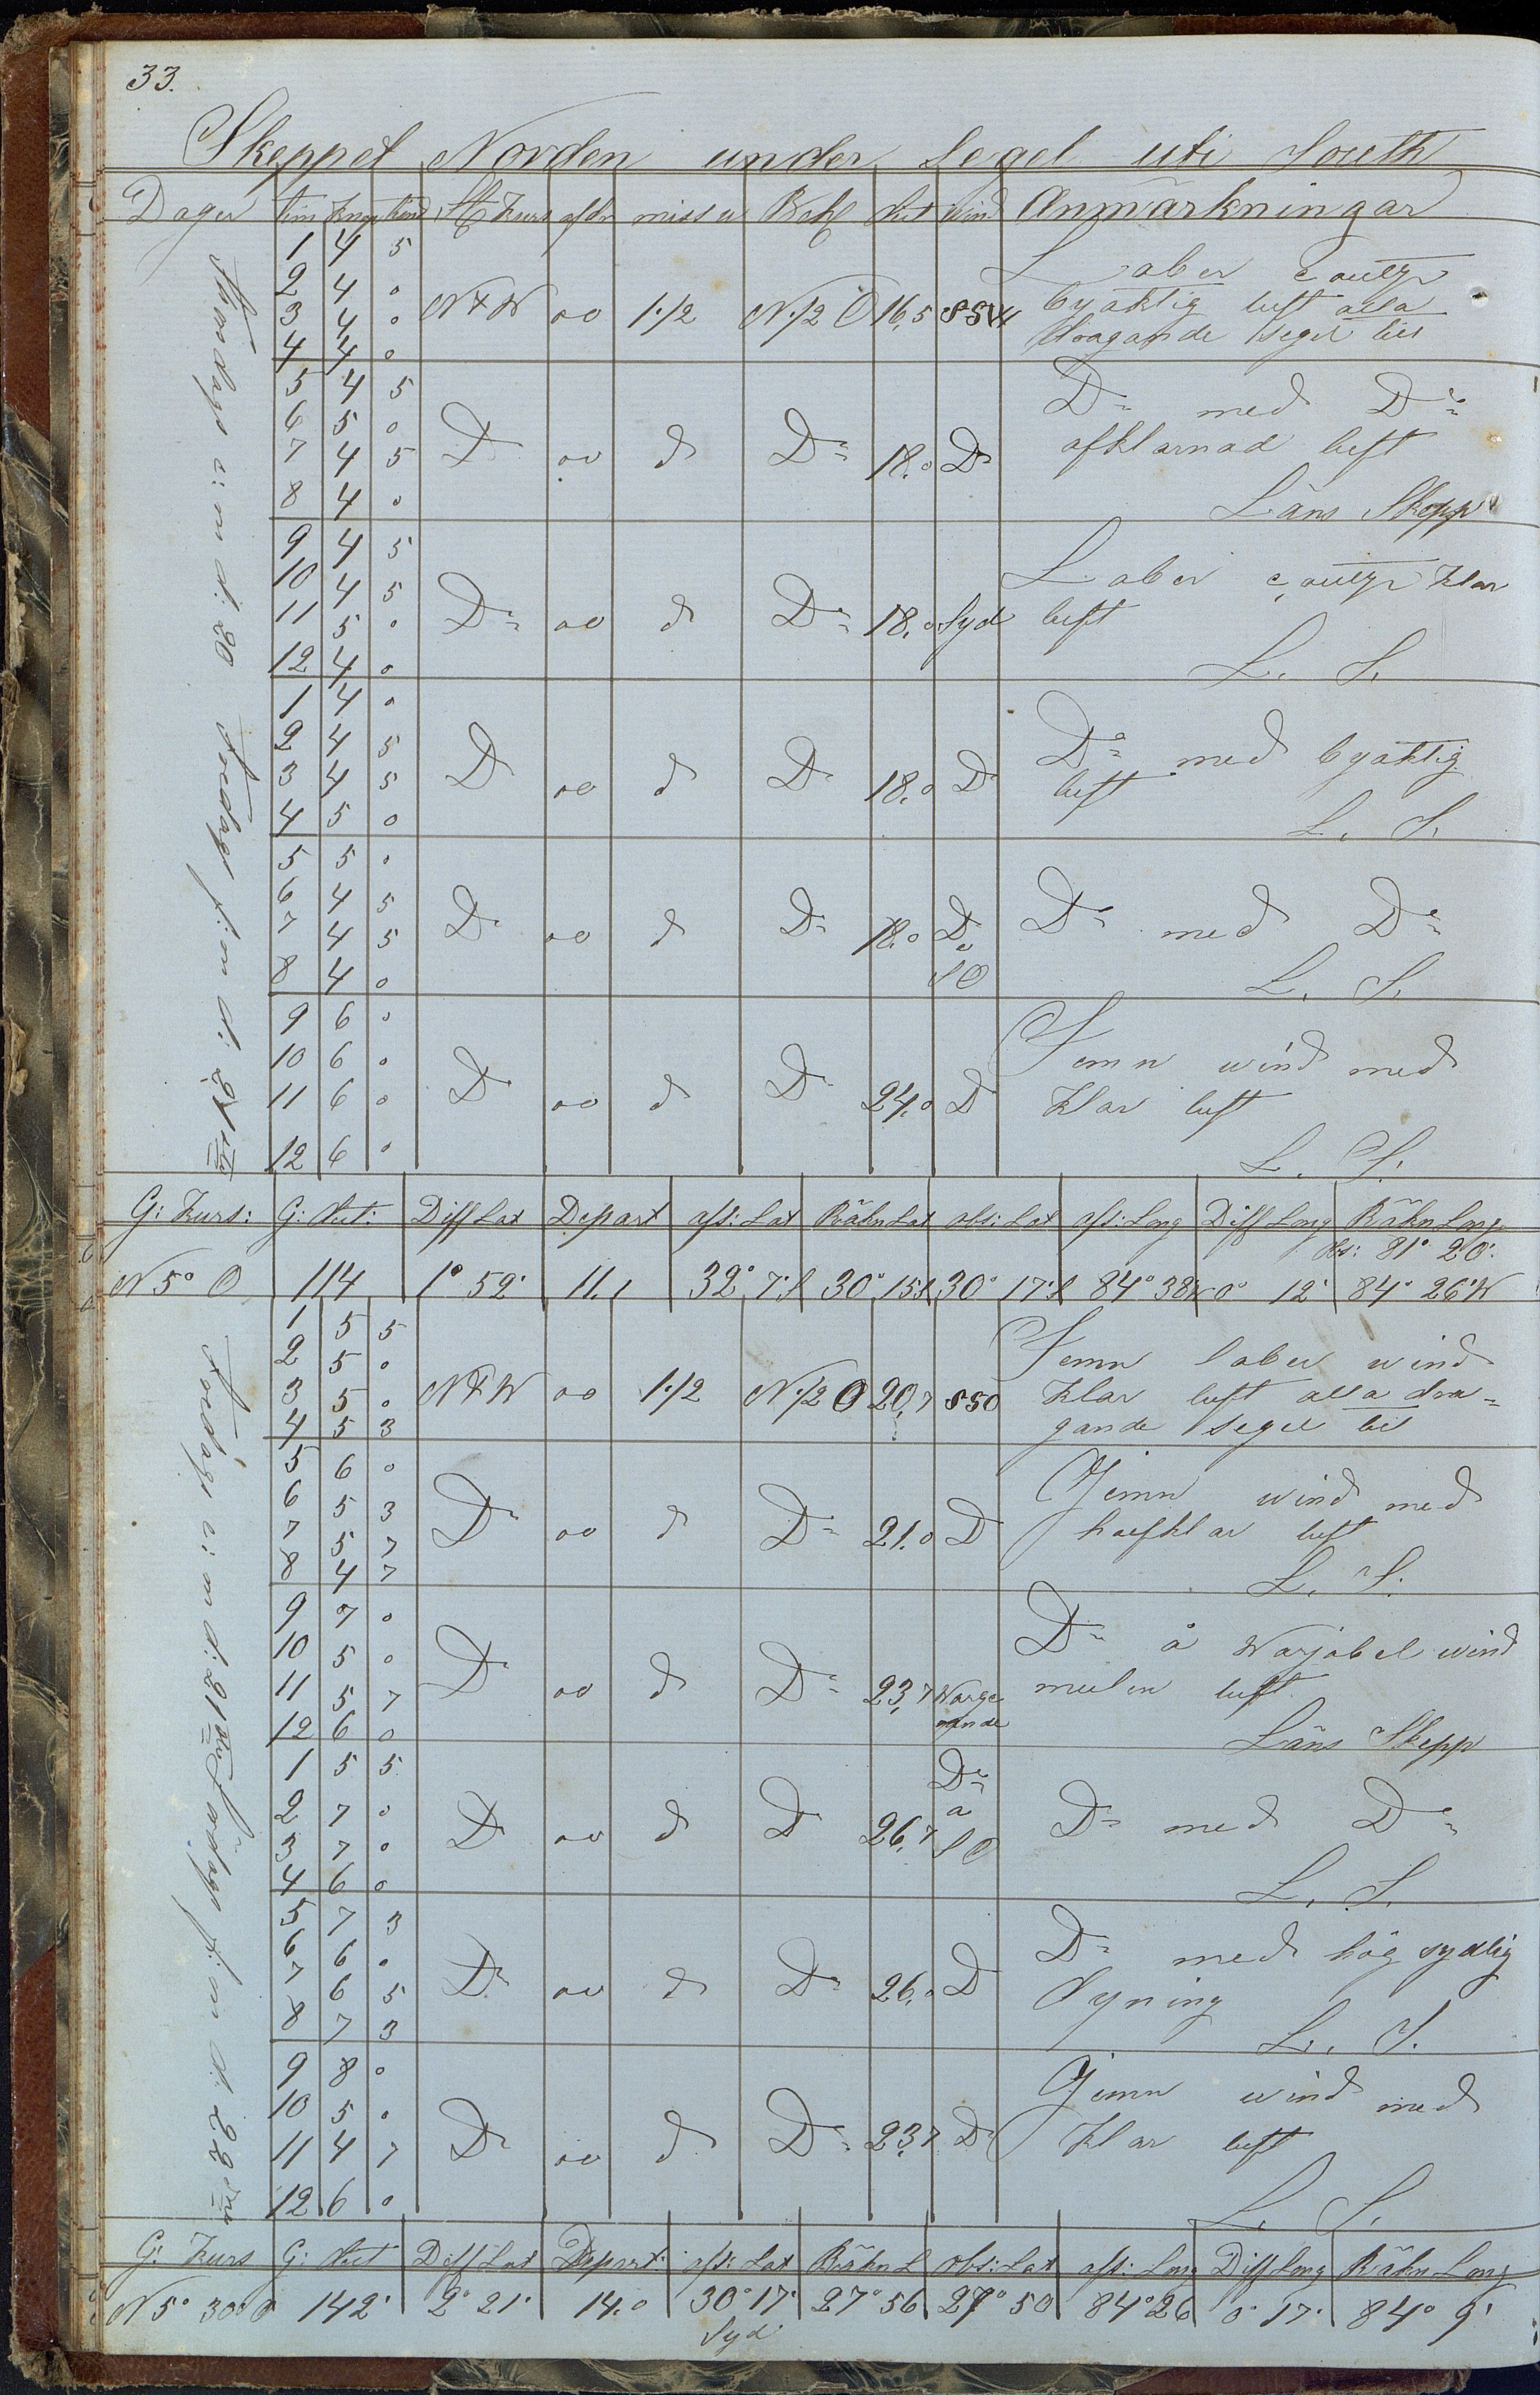 33.
Skeppet Norden under Segel uti South
Dagar tim knop St Kurs afdr miss w Beh dist wind Anmärkningar
1 4 5 Laber coultje
2 4 0 N t W oo 1.1/2 N.1/2 O 16,5 SSW byaktig luft alla
3 4 0 dragande segel till
4 4 0
5 4 5 Do med Do
6 5 0 afklarnad luft
7 4 5 D oo d Do 18.0 Do
8 4 0 Läns Skepp
9 4 5 Laber coultje klar
10 4 5 luft
11 5 0 Do oo d Do 18.0 Syd
12 4 0 L. S.
1 4 0 Do med byaktig
2 4 5 luft
3 4 5 D oo d D 18.0 D
4 5 0 L. S.
5 5 0
6 4 5 Do med Do
7 4 5 Do oo d Do 18.0 Do
8 4 0 SO L. S.
9 6 0 Jemn wind med
10 6 0 klar luft
11 6 0 D oo d D 24.0 D
12 6 0 L. S.
e: m d: 20 f: m d: 21
G: Kurs: G: dist: Diff Lat Depart afs: Lat Räkn Lat obs: Lat afs: Long Diff Long Räkn Long
Obs: 81° 20'
N 5° O 114 1° 52' 11,1 32° 7' S 30° 15 S 30° 17' S 84° 38 W 0° 12' 84° 26' W
1 5 5 Jemn laber wind
2 5 0 klar luft alla dra=
3 5 0 N t W oo 1.1/2 N.1/2 O 20,7 SSO gande segel till
4 5 3
5 6 0 Jemn wind med
6 5 3 halfklar luft
7 5 7 Do oo d Do 21.0 D
8 4 7 L. S.
9 7 0 Do å warjabel wind
10 5 0 mulen luft
11 5 7 Do oo d Do 23,7
12 6 0 Läns Skepp
1 5 5 Do
2 7 0 a Do med Do
3 7 0 D oo d D 26,7 SO
4 6 0 L. S.
5 7 3 Do med hög sydlig
6 6 0 dyning
7 6 5 Do oo d Do 26.0 D
8 7 3 L. S.
9 8 0 Jemn wind med
10 5 0 klar luft
11 4 7 Do oo d Do 23,7 D
12 6 0 L. S.
e: m d: 21 f: m d. 22
G: Kurs G: dist Diff Lat Depart: afs: Lat Räkn L obs: Lat afs: Long Diff Long Räkn Long
N 5° 30 O 142' 2° 21' 14.0 30° 17' 27° 56 27° 50 84° 26 0° 17' 84° 9'
Syd